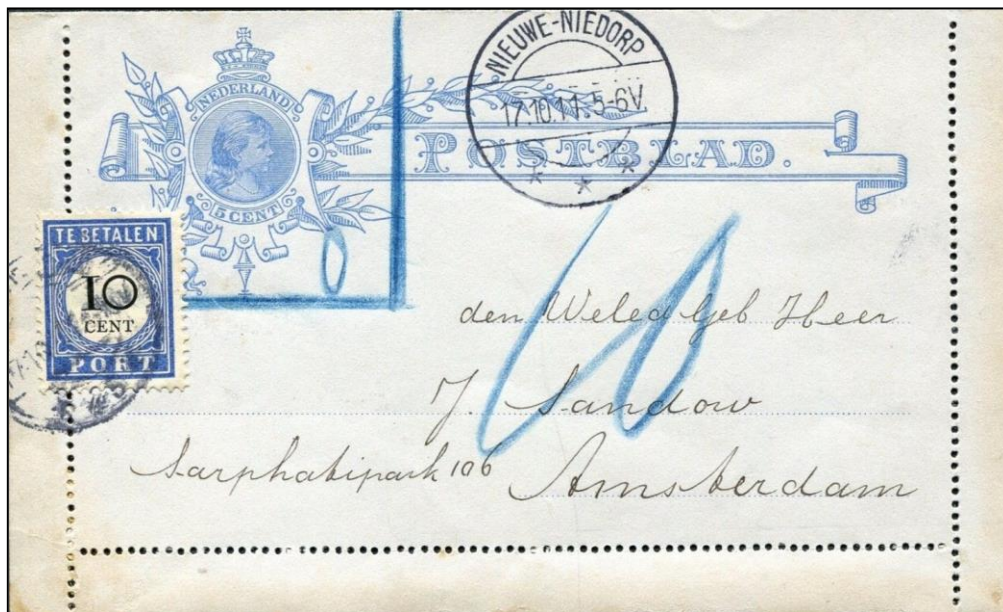 NEDERLAND
5 CENT
NIEUWE-NIEDORP
17.10.11. 5-6V
POSTBLAD.
0
TE BETALEN
10
CENT
PORT
10
den WeledGeb Heer
J. Sandow
Sarphatipark 106
Amsterdam